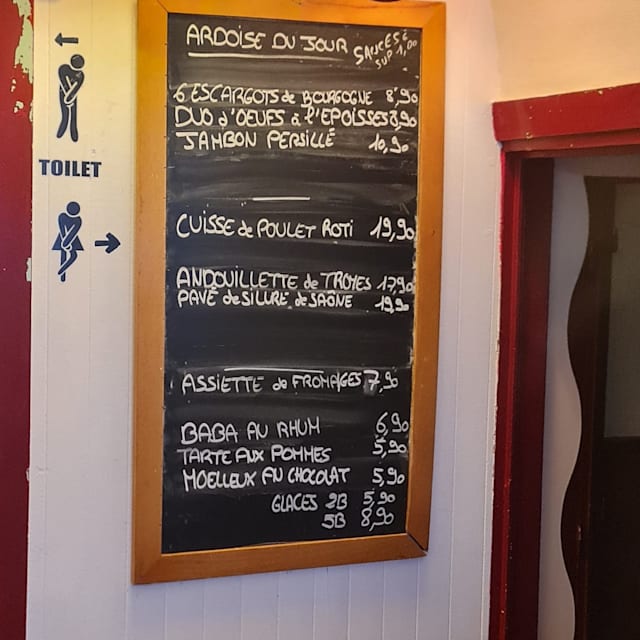 ARDOISE DU JOUR
SAUCES:
SUP 1,00
6 ESCARGOTS de BOURGOGNE 8,90
DUO d'OEUFS à l'EPOISSES 8,90
JAMBON PERSILLÉ 10,90
TOILET
CUISSE de POULET ROTI 19,90
ANDOUILLETTE de TROYES 17,90
PAVÉ de SILURE de SAÔNE 19,90
ASSIETTE de FROMAGES 7,90
BABA AU RHUM 6,90
TARTE AUX POMMES 5,90
MOELLEUX AU CHOCOLAT 5,90
GLACES 2B 5,90
5B 8,90